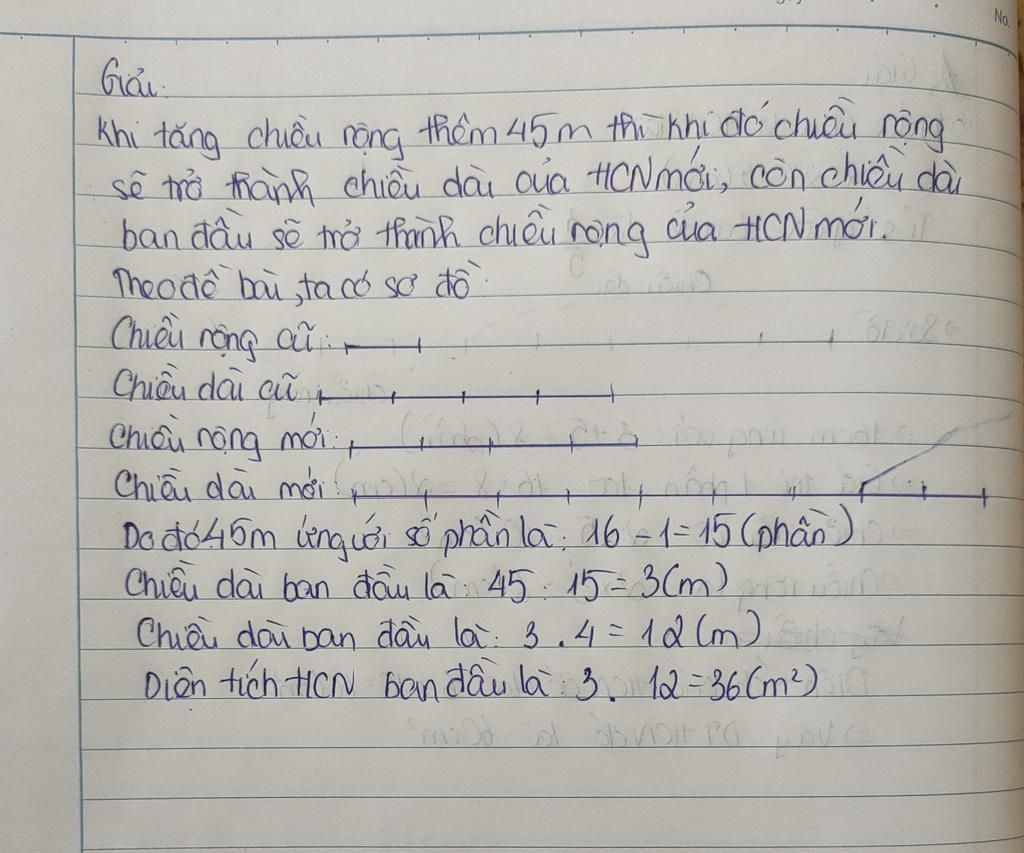 No.
Giải.
Khi tăng chiều rộng thêm 45m thì khi đó chiều rộng
sẽ trở thành chiều dài của HCN mới, còn chiều dài
ban đầu sẽ trở thành chiều rộng của HCN mới.
Theo đề bài, ta có sơ đồ
Chiều rộng cũ:
Chiều dài cũ
Chiều rộng mới:
Chiều dài mới:
Do đó 45m ứng với số phần là: 16 - 1 = 15 (phần)
Chiều dài ban đầu là: 45 : 15 = 3 (m)
Chiều dài ban đầu là: 3 . 4 = 12 (m)
Diện tích HCN ban đầu là: 3 . 12 = 36 (m²)